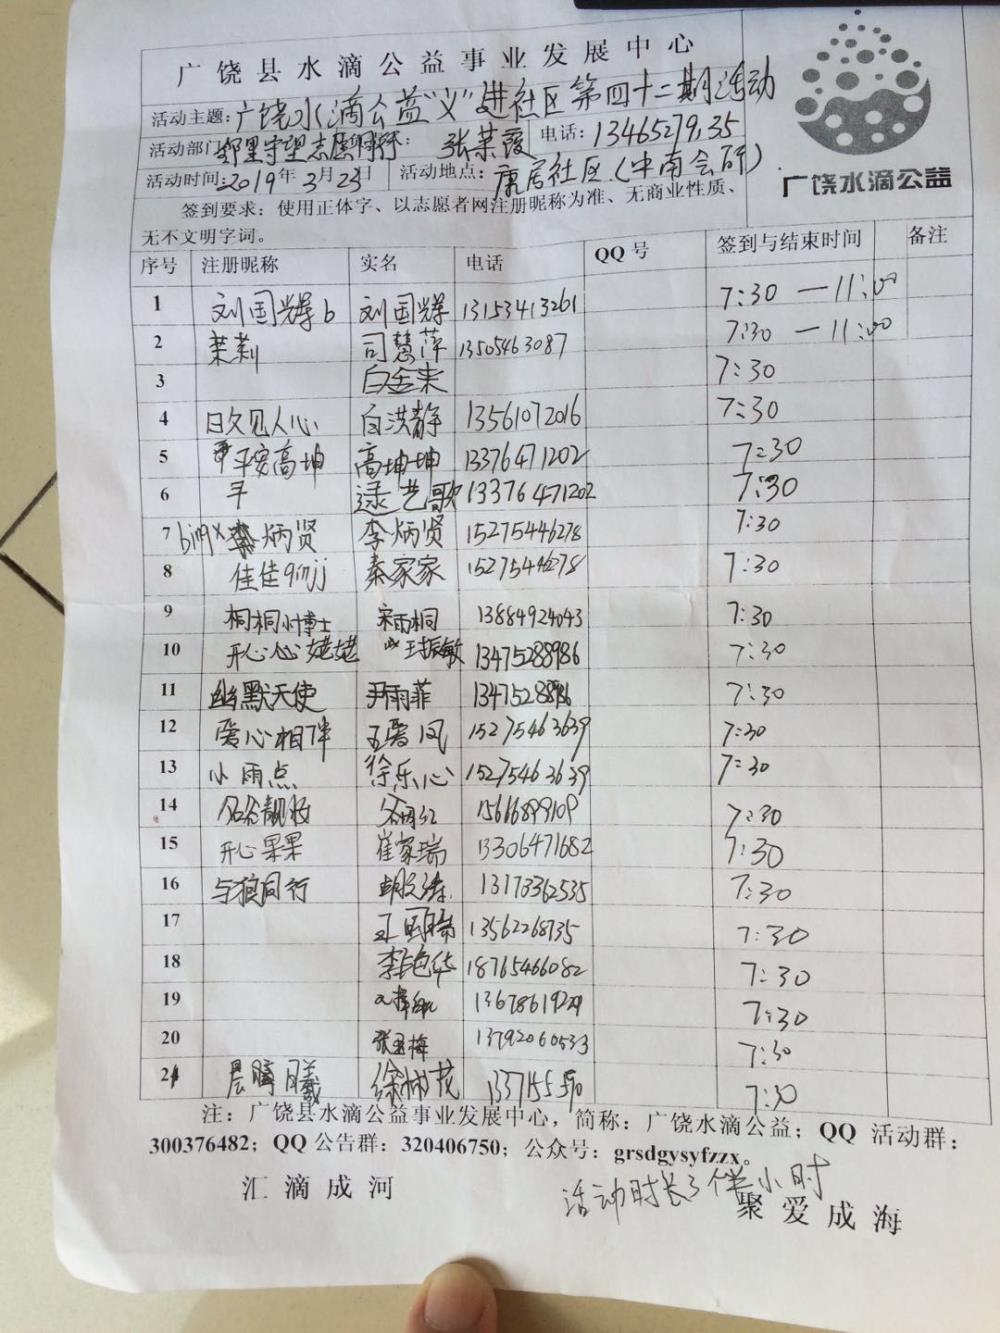 广饶县水滴公益事业发展中心
活动主题：广饶水滴公益“义”进社区第四十二期活动
活动部门 邻里守望志愿同行： 张荣霞 电话：13465279135
活动时间：2019年3月23日 活动地点：康居社区（中南会所）
广饶水滴公益
签到要求：使用正体字、以志愿者网注册昵称为准、无商业性质、
无不文明字词。
序号 注册昵称 实名 电话 QQ 号 签到与结束时间 备注
1 刘国辉b 刘国辉 13153413261 7:30 — 11:00
2 茉莉 司慧萍 13505463087 7:30 — 11:00
3 白金来 7:30
4 日久见人心 白洪静 13561072016 7:30
5 平安高坤 高坤坤 13376471202 7:30
6 艺歌 13376471202 7:30
7 bingx 李炳贤 李炳贤 15275446278 7:30
8 佳佳qinjj 秦家家 15275446278 7:30
9 桐桐小博士 宋雨桐 13884924043 7:30
10 开心心姥姥 王振敏 13475288986 7:30
11 幽默天使 尹雨菲 13475288986 7:30
12 爱心相伴 王爱凤 15275463639 7:30
13 小雨点 徐乐心 15275463639 7:30
14 7:30
15 开心果果 崔家瑞 13306471682 7:30
16 与狼同行 13173362535 7:30
17 13562268735 7:30
18 李艳华 18765466082 7:30
19 7:30
20 张玉梅 13792060533 7:30
21 晨曦 7:30
注：广饶县水滴公益事业发展中心，简称：广饶水滴公益；QQ 活动群：
300376482；QQ 公告群：320406750；公众号：grsdgysyfzzx。
活动时长3个半小时
汇滴成河 聚爱成海